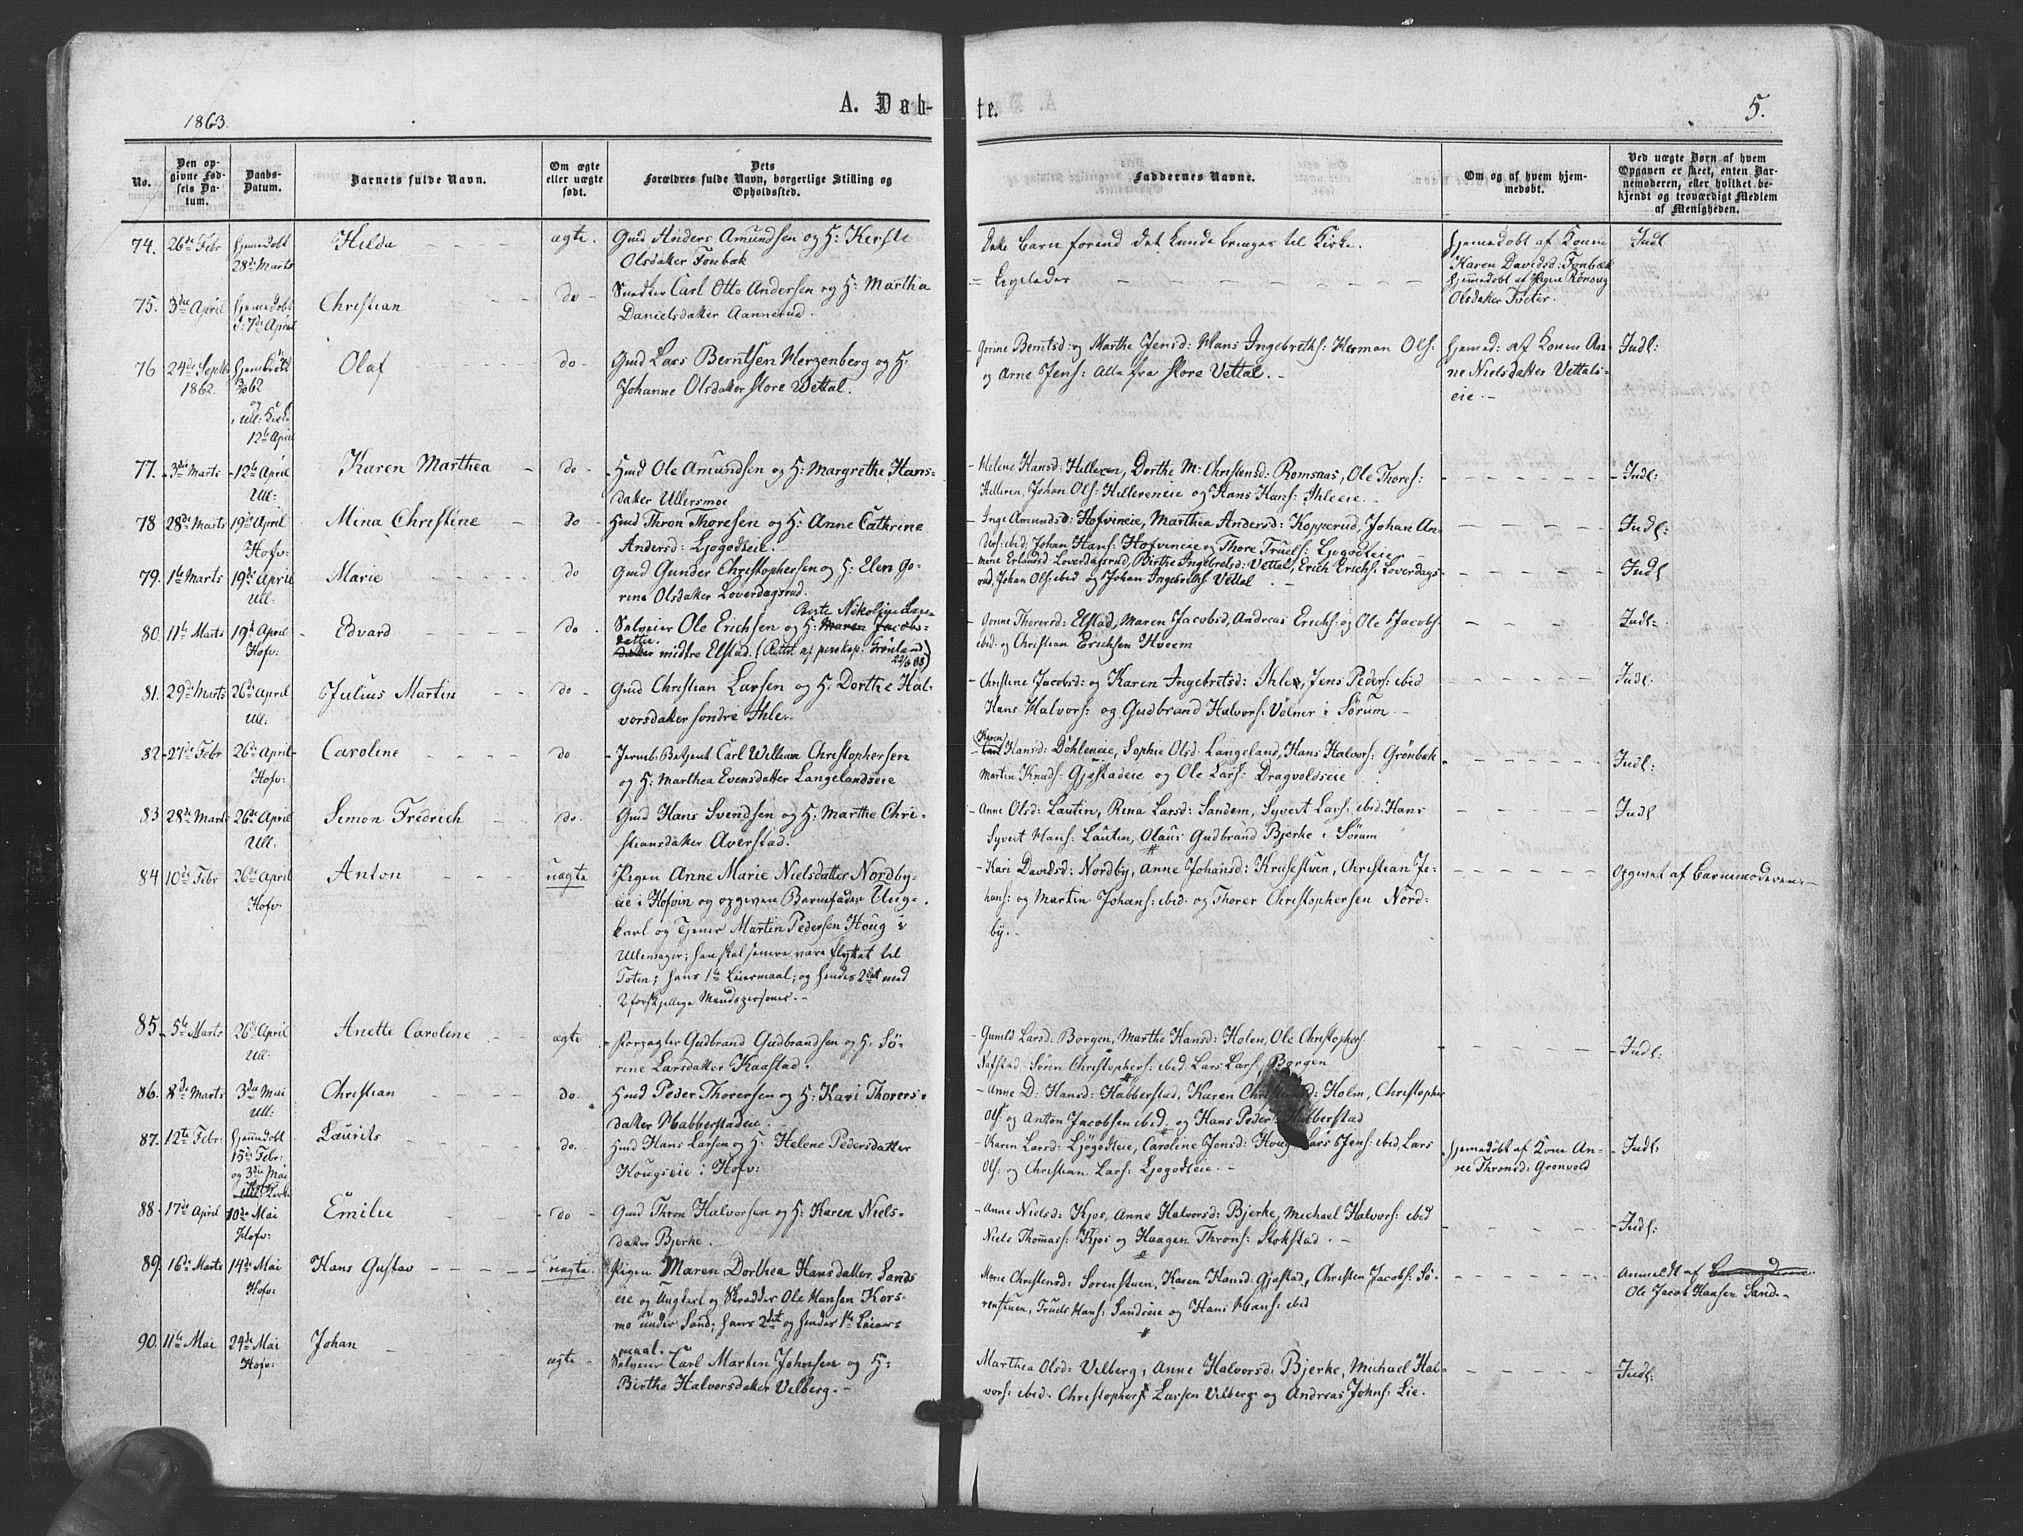 1863.
A. Døb-
te.
5.
No.
Den op-
givne Fød-
sels Da-
tum.
Daabs-
Datum.
Barnets fulde Navn.
Om ægte
eller uægte
født.
Dets
Forældres fulde Navn, borgerlige Stilling og
Opholdssted.
Faddernes Navne.
Om og af hvem hjem-
medøbt.
Ved uægte Børn af hvem
Opgaven er skeet, enten Bar-
nemoderen, eller hvilket be-
kjendt og troværdigt Medlem
af Menigheden.
74. 26de Febr
hjemedøbt
28de Marts
Helda
ægte.
Gmd Anders Amundsen og H: Kersti
Olsdatter Fonbæk
Dette Barn forend det kunde bringes til Kirke.
hjemedøbt af Kone
Karen Davidsd: Fonbæk
Indl
75. 3die April
hjemedøbt
d: 7de April
Christian
do
Carl Otto Andersen og H: Martha
Danielsdatter Aannerud.
= Ligeledes
hjemedøbt af Pigen Rønnog
Olsdatter Tveter.
76 24de Septbr
1862.
og
Ull: Kirke
12te April
Olaf
do
Gmd Lars Berntsen Herzenberg og H.
Johanne Olsdatter store Vettal.
Gorine Berntsd: og Marthe Jensd: Hans Ingebreths: Herman Ols:
og Arne Jens: Alle fra store Vettal.
hjemed: af Konen An-
ne Nielsdatter Vettals-
eie.
Indl:
77. 3die Marts
12te April
Ull:
Karen Marthea
do
Hmd Ole Amundsen og H: Margrethe Hans-
datter Ullersmoe
Helene Hansd: Helleren, Dorthe M: Christensd: Romsaas, Ole Thores:
Helleren, Johan Ols: Hellereneie og Hans Hans: Ihleeie.
Indl:
78 28de Marts
19de April
Hofv:
Mina Christine
do
Hmd Thron Thoresen og H: Anne Cathrine
Andersd: Ljogodteie.
Inge Amundsd: Hofvineie, Marthea Andersd: Kopperud, Johan An-
ders: ibid, Johan Hans: Hofvineie og Thore Truels: Ljogodteie
Indl:
79. 1te Marts
19de April
Ull.
Marie
do
Gmd Gunder Christophersen og H: Elen Go-
rine Olsdatter Loverdagsrud.
Marie Erlandsd: Loverdagsrud, Birthe Ingebretsd: Vettal, Erich Erichs: Loverdags
rud, Johan Ols: ibid og Johan Ingebreths: Vettal
Indl
80. 11te Marts
19de April
Hofv:
Edvard
do
Berte Nikoline Lar-
Selveier Ole Erichsen og H: Maren Jacobs-
datter
datter midtre Elstad. (Rettet af Grønland
22/6 88)
Gonne Thorersd: Elstad, Maren Jacobsd, Andreas Erichs: og Ole Jacobs
ibid. og Christian Erichsen Hveem
Indl:
81. 29de Marts
26de April
Ull.
Julius Martin
do
Gmd Christian Larsen og H: Dorthe Hal-
vorsdatter søndre Ihle.
Christine Jacobsd: og Karen Ingebretsd: Ihle, Jens Peders: ibid
Hans Halvors: og Gudbrand Halvors: Velner i Sørum
Indl:
82 27de Febr
26de April
Hofv:
Caroline
do.
Jernb: Betjent Carl William Christophersen
og H: Marthea Evensdatter Langelandseie
Karen
Hansd: Døhleneie, Sophie Olsd: Langeland, Hans Halvors: Grønbæk
Martin Knuds: Gjøstadeie og Ole Lars: Dragvoldseie
Indl:
83 28de Marts
26de April
Ull.
Simon Fredrich
do.
Gmd Hans Svendsen og H: Marthe Chri-
stiansdatter Averstad.
Anne Olsd: Lautin, Rina Larsd: Sandem, Syvert Lars: ibid. Hans
Syvert Hans: Lautin, Olaus Gudbrand Bjerke i Sørum
Indl
84 10de Febr
26de April
Hofv
Anton
uægte
Pigen Anne Marie Nielsdatter Nordby-
eie i Hofvin og opgiven Barnefader Ung-
karl og Tjener Martin Pedersen Houg i
Ullensager; han skal senere være flyttet til
Toten; hans 1te Leiermaal, og hendes 2det med
2 forskjellige Mandspersoner.
Kari Davidsd: Nordby, Anne Johansd: Krusestuen, Christian Jo-
hans: og Martin Johans: ibid. og Thorer Christophersen Nord-
by.
Opgivet af Barnemoderen.
85. 5te Marts
26de April
Ull:
Anette Caroline
ægte
Forpagter Gudbrand Gudbrandsen og H: Sø-
rine Larsdatter Kaastad.
Gunild Larsd: Borgen, Marthe Hansd: Holen, Ole Christophers:
Nafstad, Søren Christophers: ibid. Lars Lars: Borgen
Indl:
86. 8de Marts
3die Mai
Ull:
Christian
do.
Hmd Peder Thorersen og H: Kari Thorers-
datter Habberstadeie.
Anne D. Hansd: Habberstad, Karen Holm, Christopher
Ols: og Anton Jacobsen ibid. og Hans Peders: Habberstad
87. 12te Febr:
hjemmedøbt
15de Febr:
og 3die Mai
Hofv:
Ull: Kirke
Laurits
do.
Hmd Hans Larsen og H. Helene Pedersdatter
Hougseie i Hofv:
Karen Larsd: Ljøgodteie, Caroline Jensd: Houg, Lars Jens: ibid, Lars
Ols: og Christian Lars: Ljogodteie.
hjemedøbt af Kone An-
ne Thronsd: Gronvold
Indl:
88 17de April
10de Mai
Hofv:
Emilie
do
Gmd Thron Halvorsen og H: Karen Niels-
datter Bjerke.
Anne Nielsd: Kjos, Anne Halvorsd: Bjerke, Michael Halvors: ibid
Niels Thomass: Kjos og Haagen Throns: Stokstad.
Indl:
89. 16de Marts
14de Mai
Hofv:
Hans Gustav
uægte
Pigen Maren Dorthea Hansdatter Sands
eie og Ungkarl og Skrædder Ole Hansen Kors-
mo under Sand; hans 2det og hendes 1te Leier-
maal.
Marie Christensd: Sorenstuen, Karen Hansd: Gjøstad, Christen Jacobs: Sø-
renstuen, Truels Hans: Sandseie og Hans Hans: ibid
Anmeldt af Barnemoderen.
Ole Jacob Hansen Sand
90. 11te Mai
24de Mai
Hofv:
Johan
ægte
Selveier Carl Marten Johnsen og H:
Birthe Halvorsdatter Velberg.
Marthea Olsd: Velberg, Anne Halvorsd: Bjerke, Michael Hal-
vors: ibid. Christophers: Larsen Velberg og Andreas Johns: Lie.
Indl: